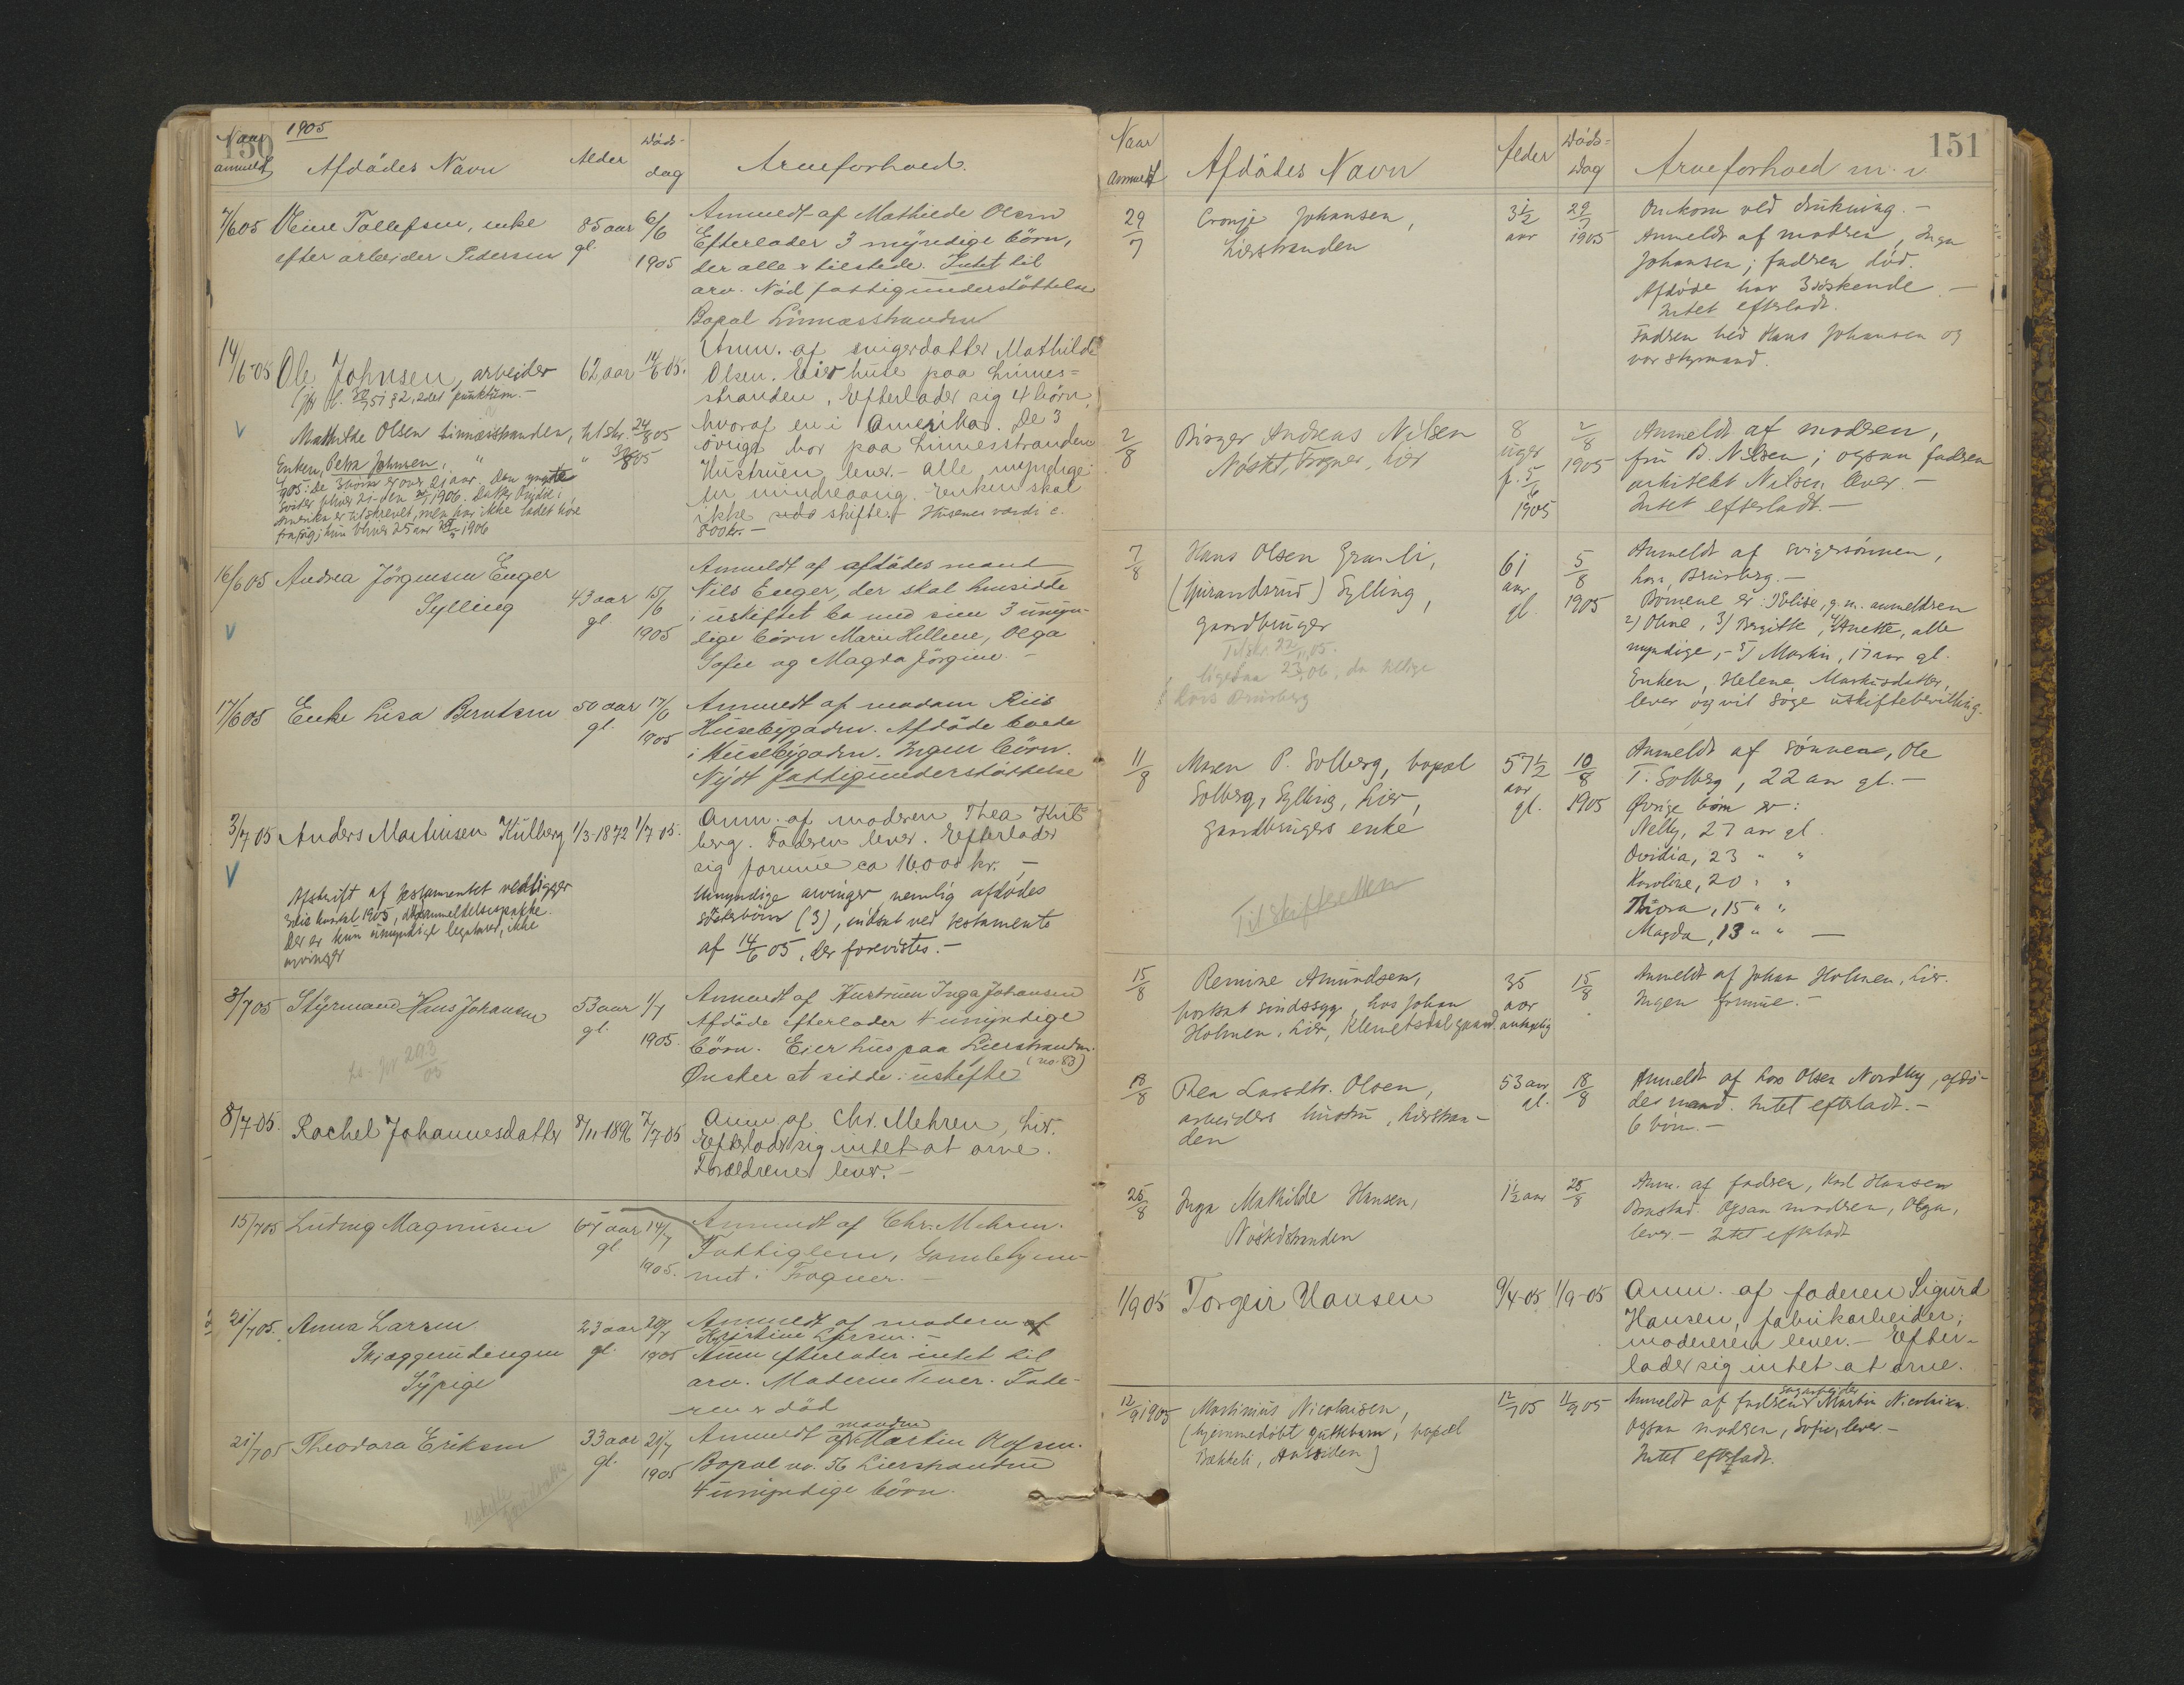 150
1905
Naar anmeldt
Afdødes Navn
Alder
Døds-dag
Arveforhold.
7/6 05 Oline Tollefsen, enke
efter arbeider Pedersen
85 aar gl.
6/6 1905
Anmeldt af Mathilde Olsen
Efterlader 3 myndige börn,
der alle er tilstede. Intet til
arv. Nöd fattigunderstöttelse
Bopæl Linnesstranden
14/6-05 Ole Johnsen, arbeider
62 aar 14/6 05.
§ 2, 2det punktum.-
Mathilde Olsen Linnesstranden, tilskr. 24/8 05
Enken, Petra Johnsen, " "
Anm. af svigerdatter Mathilde
Olsen. Eier huse paa Linnes=
stranden. Efterlader sig 4 börn,
hvoraf en i Amerika. De 3
övrige bor paa Linnesstranden
Hustruen lever.- Alle myndige
Enken skal
ikke skifte.- Husenes værdi c.
800 kr.-
16/6 05 Andrea Jörgensen Enger
Sylling
43 aar gl.
15/6 1905
Anmeldt af afdödes mand
Nils Enger, der skal hensidde
i uskiftet bo med sine 3 umyn-
dige börn Marie Hellene, Olga
Sofie og Magda Jörgine.-
17/6 05 Enke Lisa Berntsen
50 aar gl.
17/6 1905
Anmeldt af madam Riis
Husebygaden. Afdöde boede
i Husebygaden. Ingen börn.
Nydt fattigunderstöttelse
3/7 05 Anders Martinsen Kulberg 1/3-1872 1/7 05.
Anm. af moderen Thea Kul-
berg. Faderen lever. Efterlader
sig formue ca 16.000 kr.-
Umyndige arvinger nemlig afdödes
sösterbörn (3), indsat ved testamente
af 14/6 05, der forevistes.-
Afskrift af testamentet vedligger
3die kvartal 1905,
Der er kun umyndige legatarer, ikke
arvinger
3/7 05 Styrmand Hans Johansen
53 aar gl.
1/7 1905.
Anmeldt af Hustruen Inga Johansen
Afdöde efterlader 4 umyndige
börn. Eier hus paa Lierstranden.
(no. 83)
Önsker at sidde i uskifte
8/7-05. Rachel Johannesdatter 8/11-1896 7/7-05
Anm. af Chr. Mehren, Lier.
Efterlader sig intet at arve.
Forældrene lever.-
15/7 05 Ludvig Magnusen
67 aar gl
14/7 1905.
Anmeldt af Chr. Mehren.
Fattiglem, Gamlehjem-
met i Frogner.-
21/7 05. Anna Larsen
Skjæggerudengen
Sypige
23 aar gl.
20/7 1905
Anmeldt af moderen af
Kristine Larsen.-
Anna efterlader intet til
arv. Moderen lever. Fade-
ren er död
21/7 05 Theodora Eriksen
33 aar gl.
21/7 1905
Anmeldt af manden Martin Olafsen.
Bopæl no. 56 Lierstranden
4 umyndige börn.
151
Naar anmeldt
Afdödes Navn
Alder
Döds= dag
Arveforhold m. v.
29/7
Cronje Johansen,
Lierstranden
3½ aar
29/7 1905
Omkom ved drukning.-
Anmeldt af modren, Inga
Johansen; fadren död.
Afdöde har 3 söskende.-
Intet efterladt.
Fadren hed Hans Johansen og
var styrmand.
2/8
Birger Andreas Nilsen
Nöste, Frogner, Lier
8 uger
f. 5/6 1905
2/8 1905
Anmeldt af modren,
fru B. Nilsen; ogsaa fadren
arkitekt Nilsen lever.-
Intet efterladt.-
7/8
Hans Olsen Granli,
(Gjirandsrud) Sylling,
gaardbruger
61 aar gl.
5/8 1905
Anmeldt af svigersönnen,
Lars Brusberg.-
Börnene er: 1) Elise, g. m. anmeldren
2) Oline, 3) Birgitte, 4) Anette, alle
myndige,- 5) Martin, 17 aar gl.
Enken, Helene Martinsdatter,
lever og vil söge uskiftebevilling.
Tilskr. 22/11 05.
Lars Brusberg
11/8
Maren P. Solberg, bopæl
Solberg, Sylling, Lier,
gaardbrugers enke
57½ aar gl.
10/8 1905
Anmeldt af sönnen, Ole
T. Solberg, 22 aar gl.-
Øvrige börn er:
Nelly, 27 aar gl.
Ovidia, 23 " "
Karoline, 20 " "
Thora, 15 " "
Magda, 13 " " —
Til skifteretten
15/8
Remine Amundsen,
bortsat sindssyg hos Johan
Holmen, Lier, Klemetsdal gaard
35 aar antagelig
15/8
Anmeldt af Johan Holmen, Lier.
Ingen formue.-
18/8
Thea Larsdtr. Olsen,
arbeiders hustru, Lierstran-
den
53 aar gl.
18/8
Anmeldt af Lars Olsen Nordby, afdö-
des mand. Intet efterladt.-
6 börn.-
25/8
Inga Mathilde Hansen,
Nöstestranden
1½ aar
25/8
Anm. af fadren, Karl Hansen
Brastad. Ogsaa modren, Olga,
lever.- Intet efterladt
1/9 05 Torgeir Hansen
9/4-05 1/9-05
Anm. af faderen Sigurd
Hansen, fabrikarbeider;
moderen lever.- Efter-
lader sig intet at arve.
12/9 1905 Martinius Nicolaisen,
(hjemmedöbt guttebarn, bopæl
Bakkeli, Aasiden)
12/7 05 11/9 05
Anmeldt af fadren sagarbeider Martin Nicolaisen.
Ogsaa modren, Sofie, lever-
Intet efterladt.